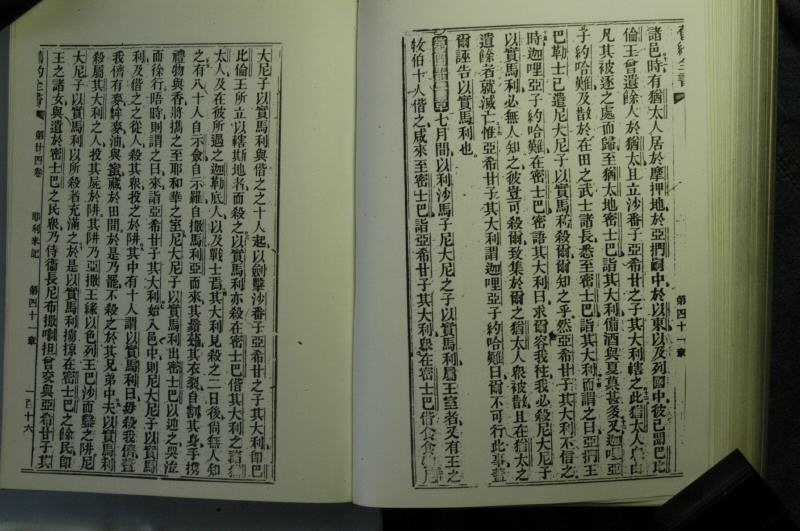 舊約全書
第四十一章
諸邑時有猶太人居於摩押地於亞捫嗣中於以東以及列國中彼已聞巴比
倫王曾遺餘人於猶太且立沙番子亞希甘子其大利轄之此猶太人由
凡其被逐之處而歸至猶太地密士巴詣其大利備酒與夏菓甚多又迦哩亞
子約哈難及散於在田之武士諸長悉至密士巴詣其大利而謂之曰亞捫王
巴勒士已遣尼大尼子以實馬利殺爾爾知之乎然亞希甘子其大利不信之
時迦哩亞子約哈難在密士巴密語其大利曰求爾容我往我必殺尼大尼子
以實馬利必無人知之彼豈可殺爾致集於爾之猶太人衆被散且在猶太之
遺餘者就滅亡惟亞希甘子其大利謂迦哩亞子約哈難曰爾不可行此事蓋
爾誣告以實馬利也
第四十一章 七月間以利沙馬子尼大尼之子以實馬利屬王室者又有王之
牧伯十人偕之咸來至密士巴詣亞希甘子其大利衆在密士巴偕食
大尼子以實馬利與偕之之十人起以劍擊沙番子亞希甘之子其大利卽巴
比倫王所立以轄斯地者而殺之以實馬利亦殺在密士巴偕其大利之諸猶
太人及在彼所遇之迦勒底人以及戰士焉其大利見殺之二日後尙無人知
之有八十人自示劍自示羅自撒馬利亞而來其鬚薙其衣裂自割其身手攜
禮物與香將攜之至耶和華之室尼大尼子以實馬利出密士巴以迎之哭泣
而徐行晤時則謂之曰來詣亞希甘子其大利始入邑中則尼大尼子以實馬
利及偕之之從人殺其衆投之於阱其中有十人謂以實馬利曰毋殺我儕蓋
我儕有麥麰麥油與蜜藏於田間於是乃罷不殺之於其兄弟中夫以實馬利
殺屬其大利之人投其屍於阱其阱乃亞撒王緣以色列王巴沙而鑿之阱尼
大尼子以實馬利以所殺者充滿之於是以實馬利擄掠在密士巴之餘民卽
王之諸女與遺於密士巴之民衆乃侍衛長尼布撒喇担曾交與亞希甘子其
舊約全書
第廿四卷
耶利米記
第四十一章
一百十六